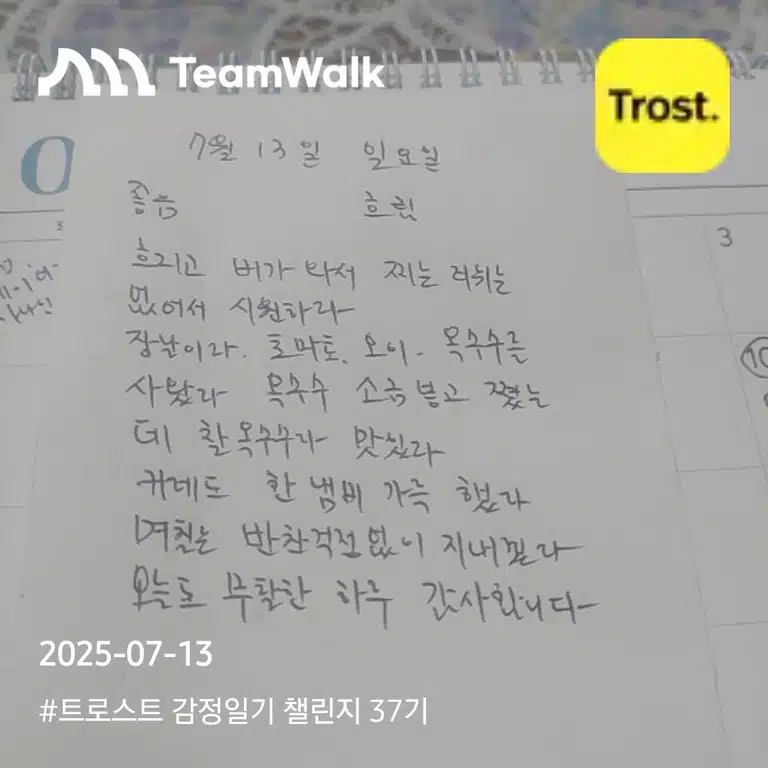 TeamWalk
Trost.
7월 13일 일요일
좋음 흐림
흐리고 비가 와서 찌는 더위는
없어서 시원하다
장날이라. 토마토. 오이. 옥수수를
사왔다 옥수수 소금넣고 쪘는
데 찰옥수수라 맛있다
카레도 한 냄비 가득 했다
며칠은 반찬걱정없이 지내겠다
오늘도 무탈한 하루 감사합니다
3
10
2025-07-13
#트로스트 감정일기 챌린지 37기